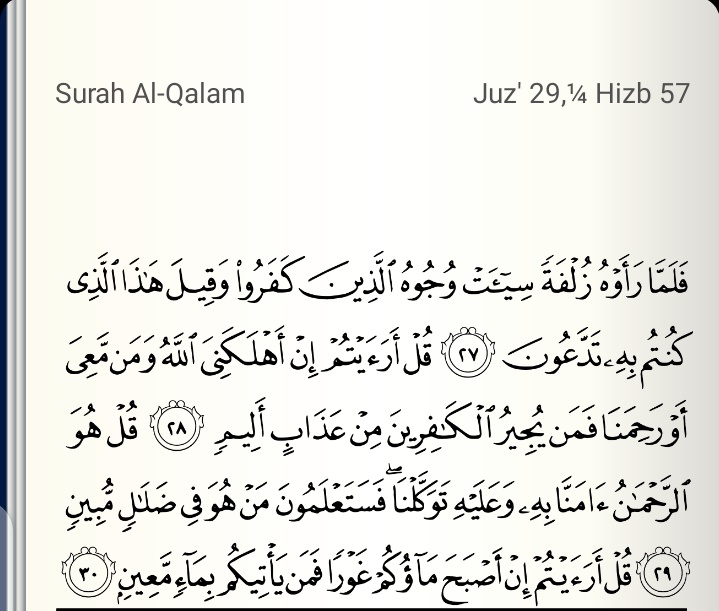 Surah Al-Qalam
Juz' 29,¼ Hizb 57
فَلَمَّا رَأَوْهُ زُلْفَةً سِيٓـَٔتْ وُجُوهُ ٱلَّذِينَ كَفَرُوا۟ وَقِيلَ هَـٰذَا ٱلَّذِى
كُنتُم بِهِۦ تَدَّعُونَ ٢٧ قُلْ أَرَءَيْتُمْ إِنْ أَهْلَكَنِىَ ٱللَّهُ وَمَن مَّعِىَ
أَوْ رَحِمَنَا فَمَن يُجِيرُ ٱلْكَـٰفِرِينَ مِنْ عَذَابٍ أَلِيمٍ ٢٨ قُلْ هُوَ
ٱلرَّحْمَـٰنُ ءَامَنَّا بِهِۦ وَعَلَيْهِ تَوَكَّلْنَا ۖ فَسَتَعْلَمُونَ مَنْ هُوَ فِى ضَلَـٰلٍ مُّبِينٍ
٢٩ قُلْ أَرَءَيْتُمْ إِنْ أَصْبَحَ مَآؤُكُمْ غَوْرًا فَمَن يَأْتِيكُم بِمَآءٍ مَّعِينٍۭ ٣٠